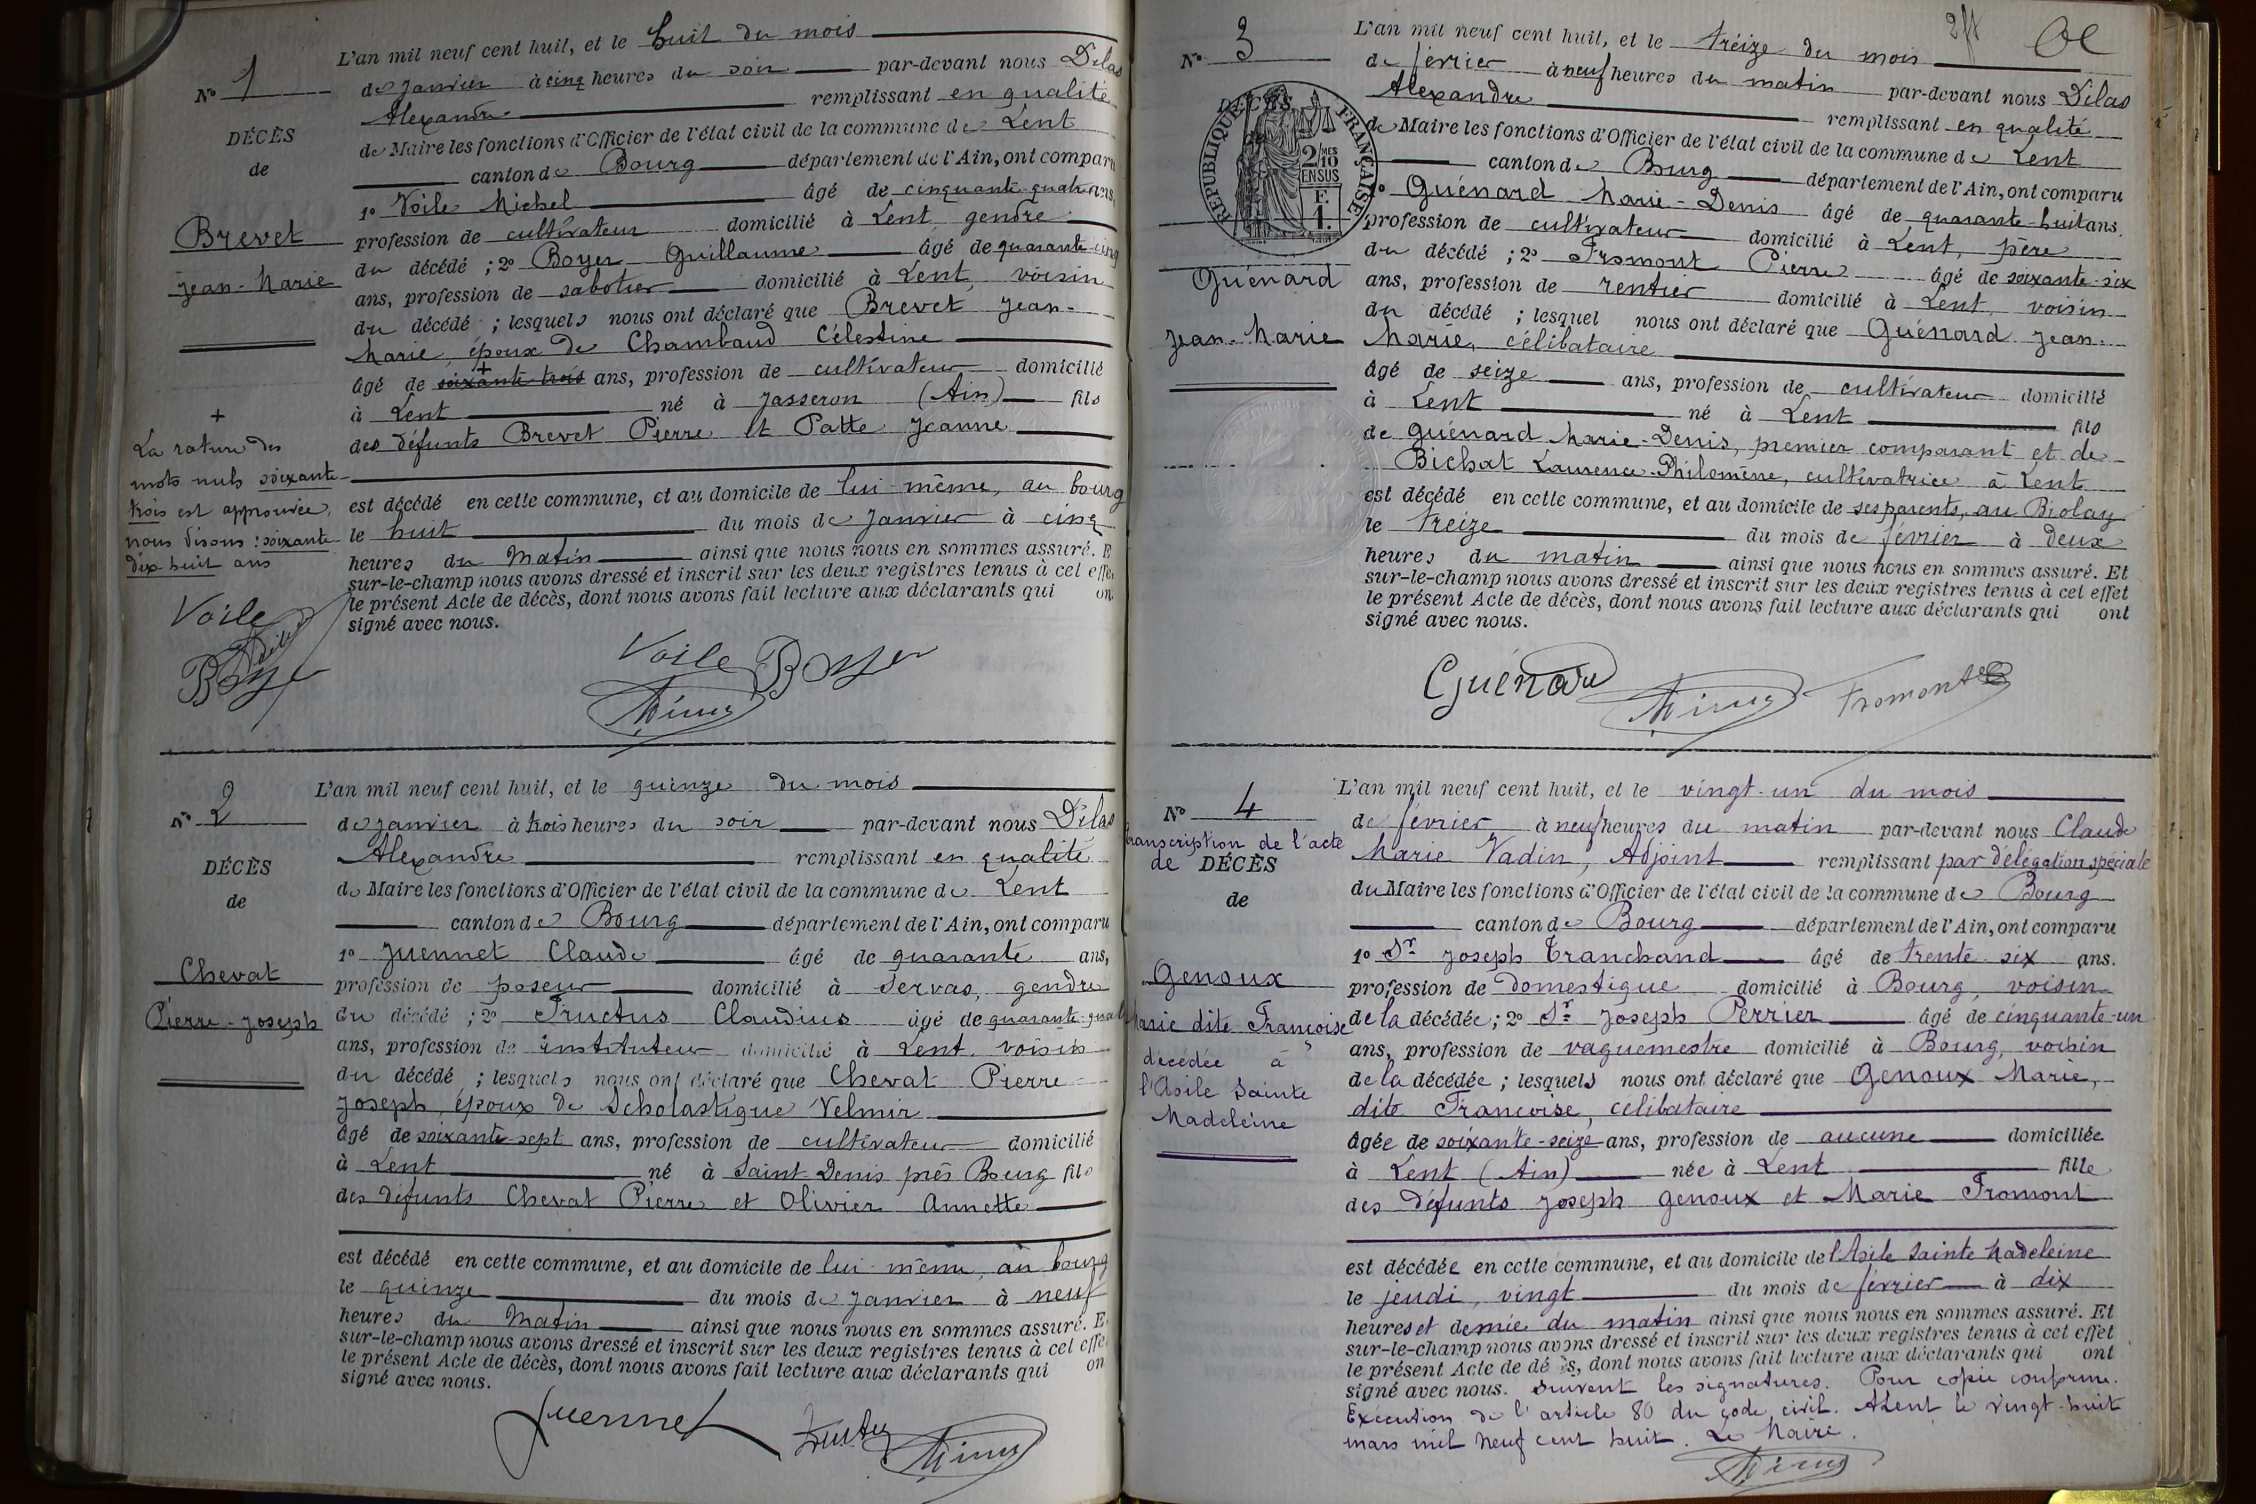 N° 1
DÉCÈS
de
Brevet
Jean-Marie
+
La rature des
mots nuls soixante-
trois est approuvée,
nous disons : soixante
dix-huit ans
Voile
Boyer
L'an mil neuf cent huit, et le huit du mois
de Janvier à cinq heures du soir par-devant nous Délas
Alexandre remplissant en qualité
de Maire les fonctions d'Officier de l'état civil de la commune de Lent
canton de Bourg département de l'Ain, ont comparu
1° Voile Michel âgé de cinquante-quatre ans,
profession de cultivateur domicilié à Lent, gendre
du décédé ; 2° Boyer Guillaume âgé de quarante-cinq
ans, profession de sabotier domicilié à Lent, voisin
du décédé ; lesquels nous ont déclaré que Brevet Jean-
Marie, époux de Chambaud Célestine
+
âgé de soixante-trois ans, profession de cultivateur domicilié
à Lent né à Jasseron (Ain) fils
des défunts Brevet Pierre et Patte Jeanne
est décédé en cette commune, et au domicile de lui-même, au bourg
le huit du mois de Janvier à cinq
heures du matin ainsi que nous nous en sommes assuré. E
sur-le-champ nous avons dressé et inscrit sur les deux registres tenus à cet effe
le présent Acte de décès, dont nous avons fait lecture aux déclarants qui on
signé avec nous.
Voile Boyer
N° 2
DÉCÈS
de
Chevat
Pierre-Joseph
L'an mil neuf cent huit, et le quinze du mois
de Janvier à trois heures du soir par-devant nous Délas
Alexandre remplissant en qualité
de Maire les fonctions d'Officier de l'état civil de la commune de Lent
canton de Bourg département de l'Ain, ont comparu
1° Juennet Claude âgé de quarante ans,
profession de poseur domicilié à Servas, gendre
du décédé ; 2° Fructus Claudius âgé de quarante-quatre
ans, profession de instituteur domicilié à Lent, voisin
du décédé ; lesquels nous ont déclaré que Chevat Pierre
Joseph, époux de Scholastique Velmir
âgé de soixante-sept ans, profession de cultivateur domicilié
à Lent né à Saint-Denis près Bourg fils
des défunts Chevat Pierre et Olivier Annette
est décédé en cette commune, et au domicile de lui-même, au bourg
le quinze du mois de Janvier à neuf
heures du matin ainsi que nous nous en sommes assuré. E
sur-le-champ nous avons dressé et inscrit sur les deux registres tenus à cet effe
le présent Acte de décès, dont nous avons fait lecture aux déclarants qui on
signé avec nous.
Juennet
N° 3
DÉCÈS
RÉPUBLIQUE FRANÇAISE
2/10 MES
EN SUS
F.
1.
Guénard
Jean-Marie
L'an mil neuf cent huit, et le treize du mois
de février à neuf heures du matin par-devant nous Délas
Alexandre remplissant en qualité
de Maire les fonctions d'Officier de l'état civil de la commune de Lent
canton de Bourg département de l'Ain, ont comparu
1° Guénard Marie-Denis âgé de quarante-huit ans.
profession de cultivateur domicilié à Lent, père
du décédé ; 2° Fromont Pierre âgé de soixante-six
ans, profession de rentier domicilié à Lent, voisin
du décédé ; lesquel nous ont déclaré que Guénard Jean-
Marie, célibataire
âgé de seize ans, profession de cultivateur domicilié
à Lent né à Lent fils
de Guénard Marie-Denis, premier comparant et de
Bichat Laurence-Philomène, cultivatrice à Lent
est décédé en cette commune, et au domicile de ses parents, au Biolay
le treize du mois de février à deux
heures du matin ainsi que nous nous en sommes assuré. Et
sur-le-champ nous avons dressé et inscrit sur les deux registres tenus à cet effet
le présent Acte de décès, dont nous avons fait lecture aux déclarants qui ont
signé avec nous.
Guénard Fromont
N° 4
transcription de l'acte
de DÉCÈS
de
Genoux
Marie dite Françoise
décédée à
l'Asile Sainte
Madeleine
L'an mil neuf cent huit, et le vingt-un du mois
de février à neuf heures du matin par-devant nous Claude
Marie Vadin, Adjoint remplissant par délégation spéciale
du Maire les fonctions d'Officier de l'état civil de la commune de Bourg
canton de Bourg département de l'Ain, ont comparu
1° Sr Joseph Tranchand âgé de trente-six ans.
profession de domestique domicilié à Bourg, voisin
de la décédée ; 2° Sr Joseph Perrier âgé de cinquante-un
ans, profession de vaguemestre domicilié à Bourg, voisin
de la décédée ; lesquels nous ont déclaré que Genoux Marie,
dite Françoise, célibataire
âgée de soixante-seize ans, profession de aucune domiciliée
à Lent (Ain) née à Lent fille
des défunts Joseph Genoux et Marie Fromont
est décédée en cette commune, et au domicile de l'Asile Sainte Madeleine
le jeudi, vingt du mois de février à dix
heures et demie du matin ainsi que nous nous en sommes assuré. Et
sur-le-champ nous avons dressé et inscrit sur les deux registres tenus à cet effet
le présent Acte de décès, dont nous avons fait lecture aux déclarants qui ont
signé avec nous. Suivent les signatures. Pour copie conforme.
Exécution de l'article 80 du code civil. A Lent le vingt-huit
mars mil neuf cent huit. Le Maire.